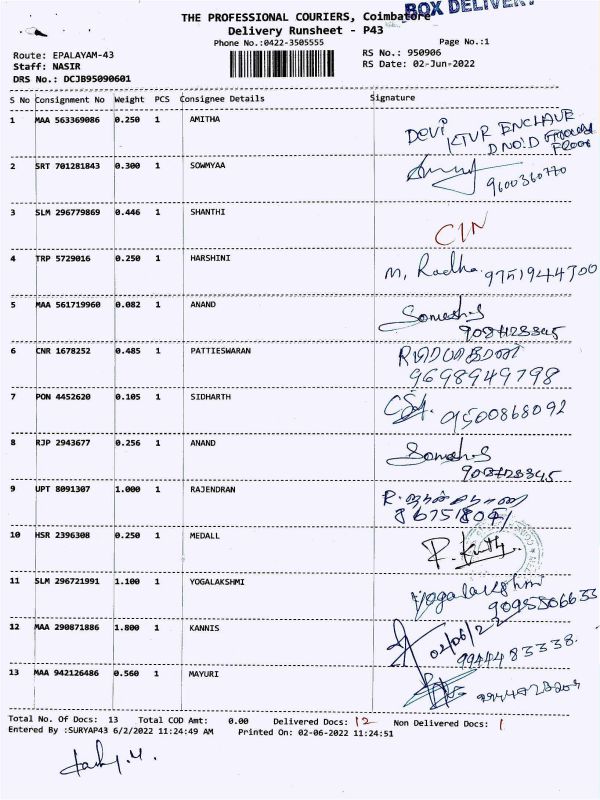 BOX DELIVERY
THE PROFESSIONAL COURIERS, Coimbatore
Delivery Runsheet - P43
Phone No.:0422-3505555
Page No.:1
Route: EPALAYAM-43
RS No.: 950906
Staff: NASIR
RS Date: 02-Jun-2022
DRS No.: DCJB95090601
S No Consignment No Weight PCS Consignee Details Signature
1 MAA 563369086 0.250 1 AMITHA
DEVI KTVR ENCLAVE
D NO:D GROUND
FLOOR
2 SRT 701281843 0.300 1 SOWMYAA
9600360770
3 SLM 296779869 0.446 1 SHANTHI
C/N
4 TRP 5729016 0.250 1 HARSHINI
M. Radha 9751944700
5 MAA 561719960 0.082 1 ANAND
Somesh.S
6 CNR 1678252 0.485 1 PATTIESWARAN
9698949798
7 PON 4452620 0.105 1 SIDHARTH
9500868092
8 RJP 2943677 0.256 1 ANAND
Somesh.S
9 UPT 8091307 1.000 1 RAJENDRAN
10 HSR 2396308 0.250 1 MEDALL
11 SLM 296721991 1.100 1 YOGALAKSHMI
Yogalakshmi
9095806633
12 MAA 290871886 1.800 1 KANNIS
02/06/22
9944483338.
13 MAA 942126486 0.560 1 MAYURI
Total No. Of Docs: 13 Total COD Amt: 0.00 Delivered Docs: 12 Non Delivered Docs: 1
Entered By :SURYAP43 6/2/2022 11:24:49 AM Printed On: 02-06-2022 11:24:51